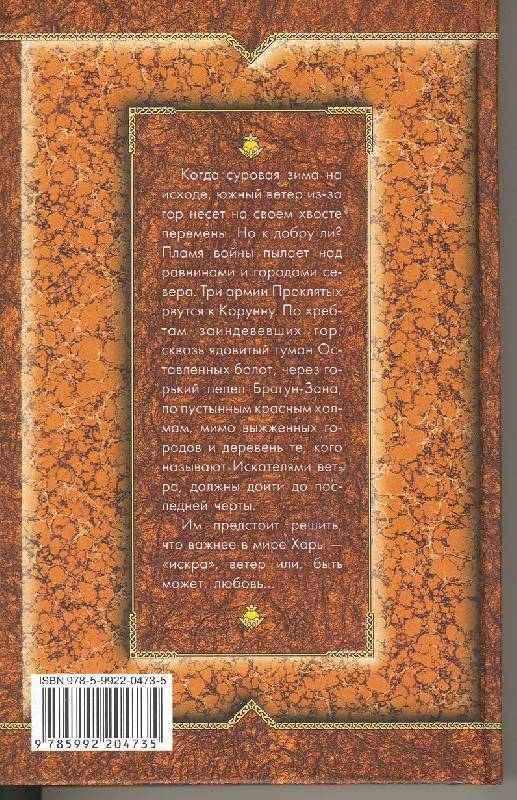 Когда суровая зима на
исходе, южный ветер из-за
гор несет на своем хвосте
перемены. Но к добру ли?
Пламя войны пылает над
равнинами и городами се-
вера. Три армии Проклятых
рвутся к Корунну. По хреб-
там заиндевевших гор,
сквозь ядовитый туман Ос-
тавленных болот, через го-
рький пепел Брагун-Зана,
по пустынным красным хол-
мам, мимо выжженных го-
родов и деревень те, кого
называют Искателями вет-
ра, должны дойти до пос-
ледней черты.
Им предстоит решить,
что важнее в мире Хары —
«искра», ветер или, быть
может, любовь...
ISBN 978-5-9922-0473-5
9 785992 204735